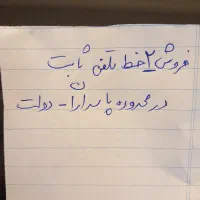 فروش ۲ خط تلفن ثابت
در محدوده پاسداران - دولت